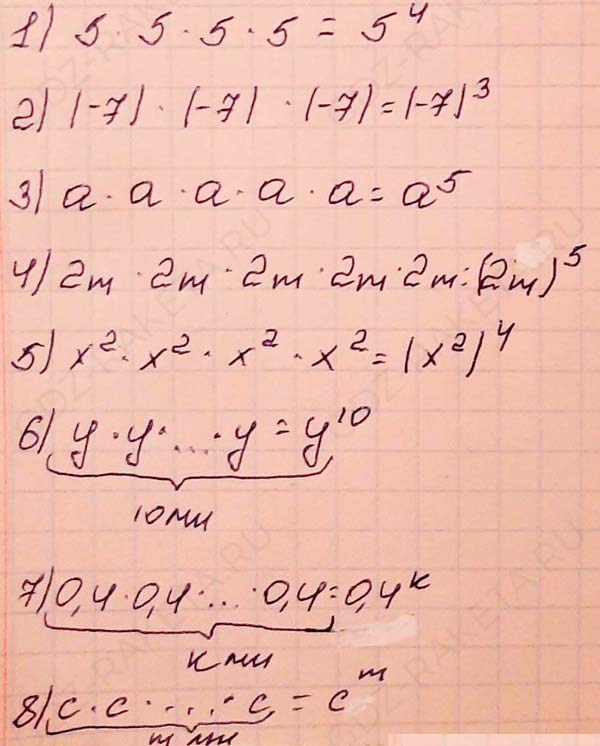 1) 5 · 5 · 5 · 5 = 5⁴
2) (-7) · (-7) · (-7) = (-7)³
3) a · a · a · a · a = a⁵
4) 2m · 2m · 2m · 2m · 2m = (2m)⁵
5) x² · x² · x² · x² = (x²)⁴
6) y · y · ... · y = y¹⁰
10 мн
7) 0,4 · 0,4 · ... · 0,4 = 0,4ᵏ
к мн
8) c · c · ... · c = cᵐ
m мн
GDZ-RAKETA.RU